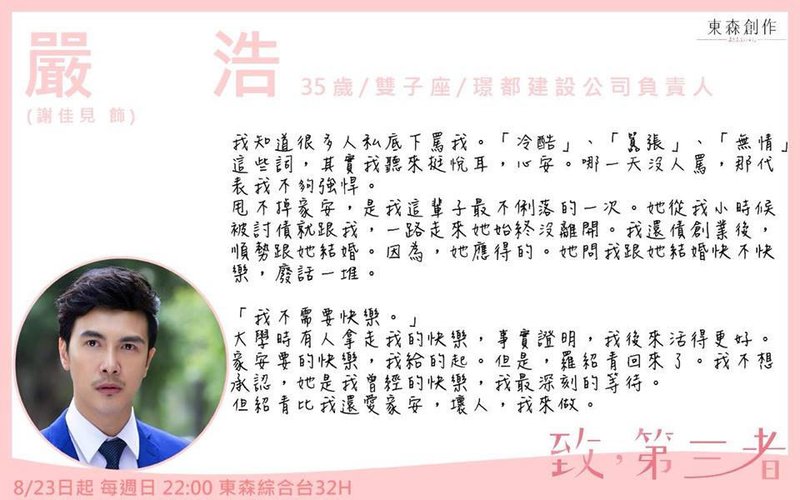 東森創作
嚴　浩 35歲/雙子座/璟都建設公司負責人
(謝佳見 飾)
我知道很多人私底下罵我。「冷酷」、「囂張」、「無情」
這些詞，其實我聽來挺悅耳，心安。哪一天沒人罵，那代
表我不夠強悍。
甩不掉家安，是我這輩子最不俐落的一次。她從我小時候
被討債就跟我，一路走來她始終沒離開。我還債創業後，
順勢跟她結婚。因為，她應得的。她問我跟她結婚快不快
樂，廢話一堆。
「我不需要快樂。」
大學時有人拿走我的快樂，事實證明，我後來活得更好。
家安要的快樂，我給的起。但是，羅紹青回來了。我不想
承認，她是我曾經的快樂，我最深刻的等待。
但紹青比我還愛家安，壞人，我來做。
致，第三者
8/23日起 每週日 22:00 東森綜合台32H